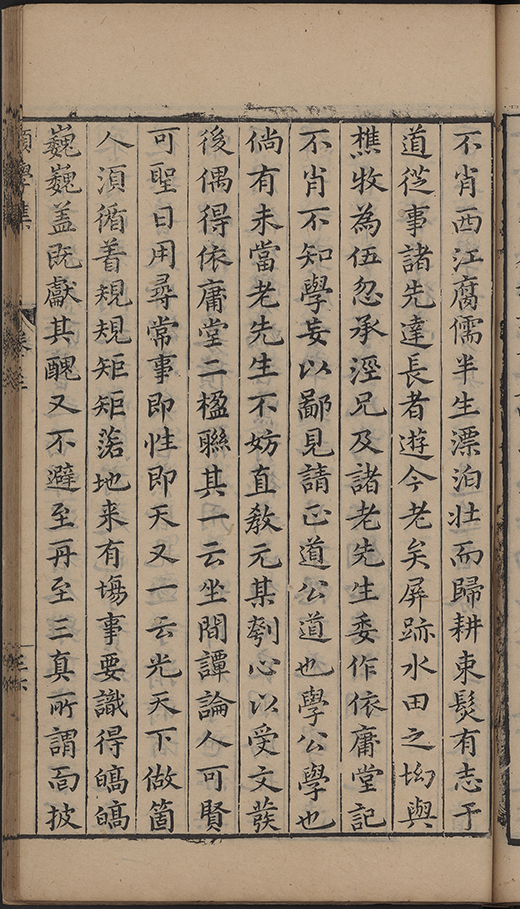 不肖西江腐儒半生漂泊壯而歸耕束髮有志于
道從事諸先達長者遊今老矣屏跡水田之坳與
樵牧為伍忽承涇兄及諸老先生委作依庸堂記
不肖不知學妄以鄙見請正道公道也學公學也
倘有未當老先生不妨直教元某刳心以受文蕟
後偶得依庸堂二楹聯其一云坐間譚論人可賢
可聖日用尋常事即性即天又一云光天下做箇
人湏循着規規矩矩落地来有塲事要識得皜皜
巍巍盖既獻其醜又不避至再至三真所謂面披